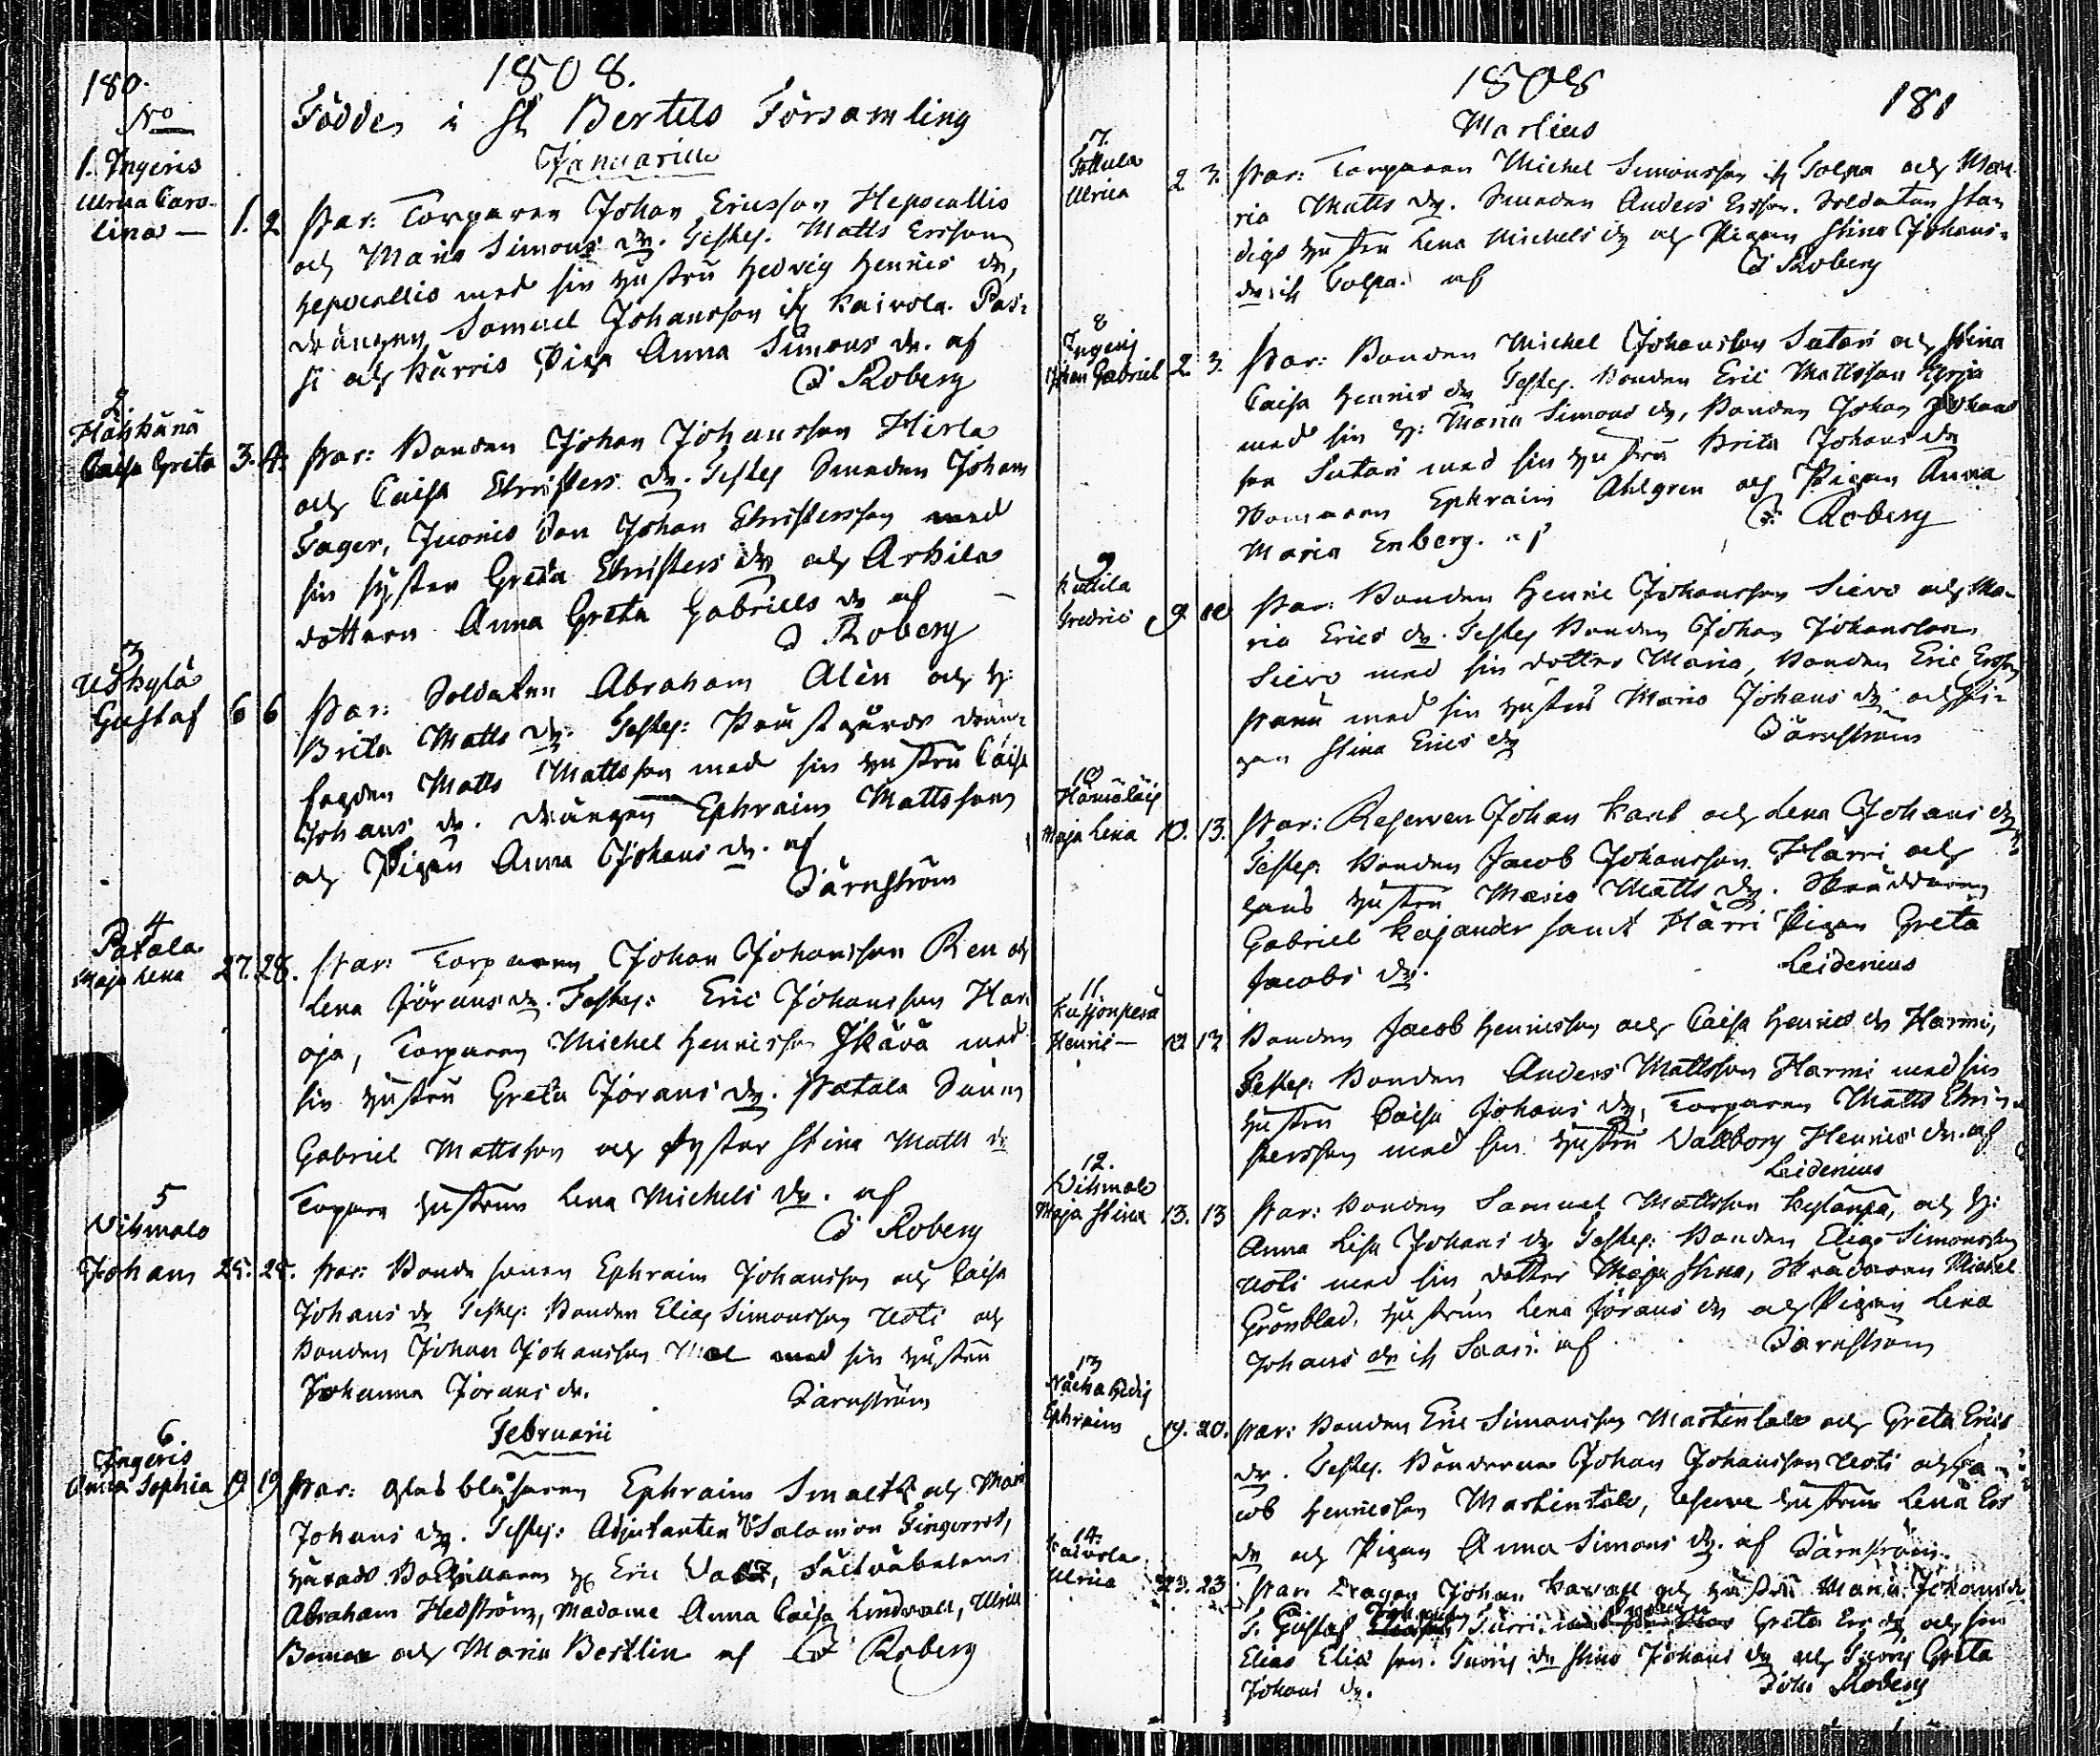 180.
1808.
No
Födde i St Bertels Församling
Januarii
1. Ingeris
Ulrica Caro-
lina — 1. 2.
Par: Torparen Johan Ericsson Hepocallio
och Maria Simons dr. Testes. Matts Ersson
Hepocallio med sin hustru Hedvig Henrics dr,
drängen Samuel Johansson ifr Kaivola. Pas-
si och Kärris Piga Anna Simons dr. af
Roberg
2.
Caisa Greta 3. 4.
Par: Bonden Johan Johansson Hirla
och Caisa Christers dr. Testes Smeden Johan
Fager, Juonis Son Johan Christersson med
sin syster Greta Christers dr och Arkila
dottern Anna Greta Gabriels dr af
Roberg
3
Uskylä
Gustaf 6 6
Par: Soldaten Abraham Alèn och h:
Brita Matts dr. Testes:
fogden Matts Mattsson med sin hustru Caisa
Johans dr. drängen Ephraim Mattsson
och Pigan Anna Johans dr. af
Järnström
4
Patala
Maja Lena 27. 28.
Par: Torparen Johan Johansson Ren och
Lena Jörans dr. Testes: Eric Johansson Har-
oja, Torparen Michel Henricsson Ikävä med
sin hustru Greta Jörans dr. Patala Sonen
Gabriel Mattsson och Syster Stina Matts dr
Torpare hustrun Lena Michels dr. af
Roberg
5
Vihmalo
Johan 25. 25.
Par: Bonde sonen Ephraim Johansson och Caisa
Johans dr Testes: Bonden Elias Simonsson Uoti och
Bonden Johan Johansson med sin hustru
Johanna Jörans dr.
Järnström
Februarii
6.
Ingeris
Anna Sophia 19 19
Par: Glasblåsaren Ephraim och Maria
Johans dr. Testes: Adjutanten Salomon
Eric
Abraham Hedström, Madame Anna Caisa Lindwall, Ulrica
och Maria Bertlin af Roberg
1808
181
Martius
7.
Ulrica 2 3.
Par: Torparen Michel Simonsson ifr Tolpa och Ma-
ria Matts dr. Smeden Anders Ersson. Soldaten Stan
digs hustru Lena Michels dr och Pigan Stina Johans-
dr ifr Tolpa. af Roberg
8
Ingeris
Johan Gabriel 2 3.
Par: Bonden Michel Johansson Sutari och Stina
Caisa Henrics dr Testes. Bonden Eric Mattsson
med sin h: Maria Simons dr, Bonden Johan Johans
son Sutari med sin hustru Brita Johans dr
Ephraim Ahlgren och Pigan Anna
Maria Enberg. af Roberg
9
Kattila
Fredric 9. 10
Par: Bonden Henric Johansson Sievo och Ma-
ria Erics dr. Testes Bonden Johan Johansson
Sievo med sin dotter Maria, Bonden Eric Ersson
med sin hustru Maria Johans dr och Pi-
gan Stina Erics dr
Järnström
10
Maja Lena 10. 13.
Par: Reserven Johan och Lena Johans dr
Testes: Bonden Jacob Johansson Härri och
hans hustru Maria Matts dr. Skräddaren
Gabriel Kajander samt Härri Pigan Greta
Jacobs dr.
Leidenius
11
Henric — 12 13
Bonden Jacob Henricsson och Caisa Henrics dr Harmi,
Testes: Bonden Anders Mattsson Harmi med sin
hustru Caisa Johans dr, Torparen Matts Chri-
stersson med sin hustru Vallborg Henrics dr. af
Leidenius
12.
Vihmalo
Maja Stina 13. 13
Par: Bonden Samuel Mattsson Kylänpä, och h:
Anna Lisa Johans dr Testes: Bonden Elias Simonsson
Uoti med sin dotter Maja Stina, Skrädaren Michel
Grönblad, hustrun Lena Jörans dr och Pigan Lena
Johans dr ifr Saari af
Järnström
13
Ephraim 19. 20.
Par: Bonden Eric Simonsson Martintalo och Greta Erics
dr. Testes. Bönderne Johan Johansson Uoti och Ja-
cob Henricsson Martintalo, Reserve hustrun Lena Ers
dr och Pigan Anna Simons dr. af Järnström.
14.
Kaivola
Ulrica 23. 23
Par: Dragon Johan och hustru Maria Johans dr
T. Gustaf Greta Ers dr och sin
Elias Elias son. dr Stina Johans dr och Greta
Johans dr.
Roberg